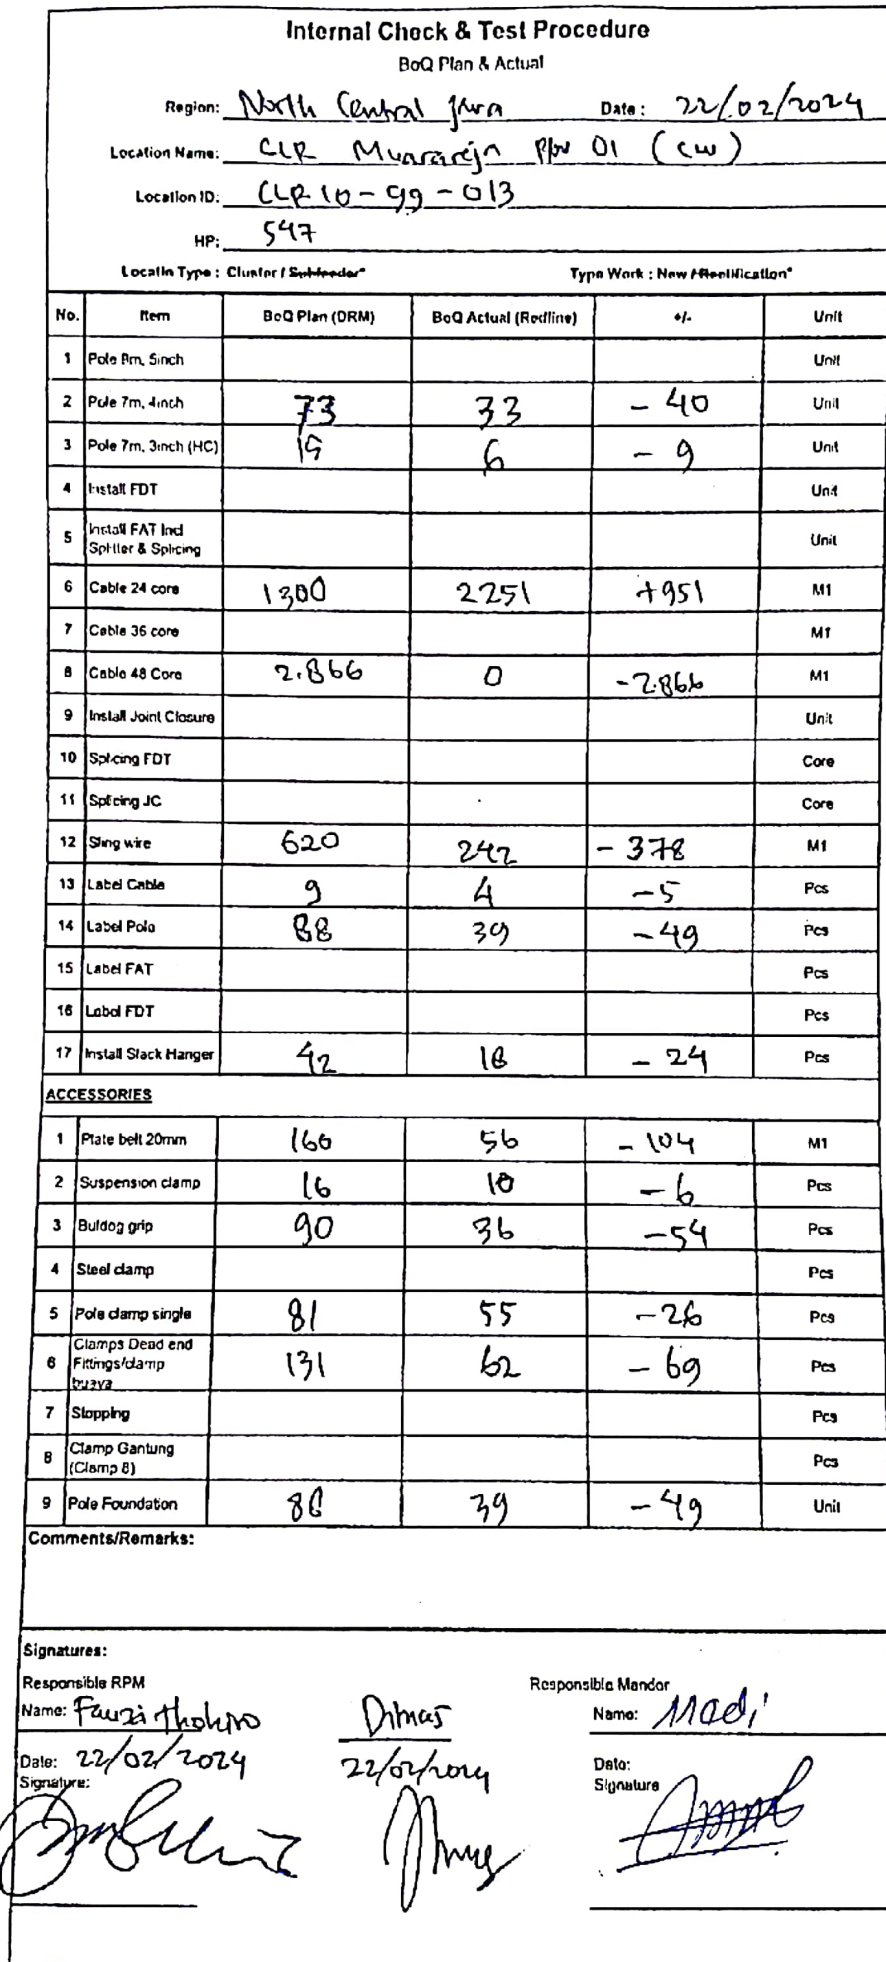 Internal Check & Test Procedure
BoQ Plan & Actual
Region: North Central Jawa Date: 22/02/2024
Location Name: CLR Muarareja PPW 01 (CW)
Location ID: CLR 10-99-013
HP: 547
Locatin Type : Cluster / Subfeeder* Type Work : New / Rectification*
No. Item BoQ Plan (DRM) BoQ Actual (Redline) +/- Unit
1 Pole 8m, 5inch Unit
2 Pole 7m, 4inch 73 33 - 40 Unit
3 Pole 7m, 3inch (HC) 15 6 - 9 Unit
4 Install FDT Unit
5 Install FAT Incl Splitter & Splicing Unit
6 Cable 24 core 1300 2251 +951 M1
7 Cable 36 core M1
8 Cable 48 Core 2.866 0 -2.866 M1
9 Install Joint Closure Unit
10 Splicing FDT Core
11 Splicing JC Core
12 Sling wire 620 242 - 378 M1
13 Label Cable 9 4 -5 Pcs
14 Label Pole 88 39 -49 Pcs
15 Label FAT Pcs
16 Label FDT Pcs
17 Install Slack Hanger 42 18 - 24 Pcs
ACCESSORIES
1 Plate belt 20mm 160 56 - 104 M1
2 Suspension clamp 16 10 -6 Pcs
3 Buldog grip 90 36 -54 Pcs
4 Steel clamp Pcs
5 Pole clamp single 81 55 -26 Pcs
6 Clamps Dead end Fittings/clamp buaya 131 62 - 69 Pcs
7 Stopping Pcs
8 Clamp Gantung (Clamp 8) Pcs
9 Pole Foundation 88 39 -49 Unit
Comments/Remarks:
Signatures:
Responsible RPM Responsible Mandor
Name: Fauzi Dimas Name: Madi
Date: 22/02/2024 22/02/2024 Date:
Signature: Signature